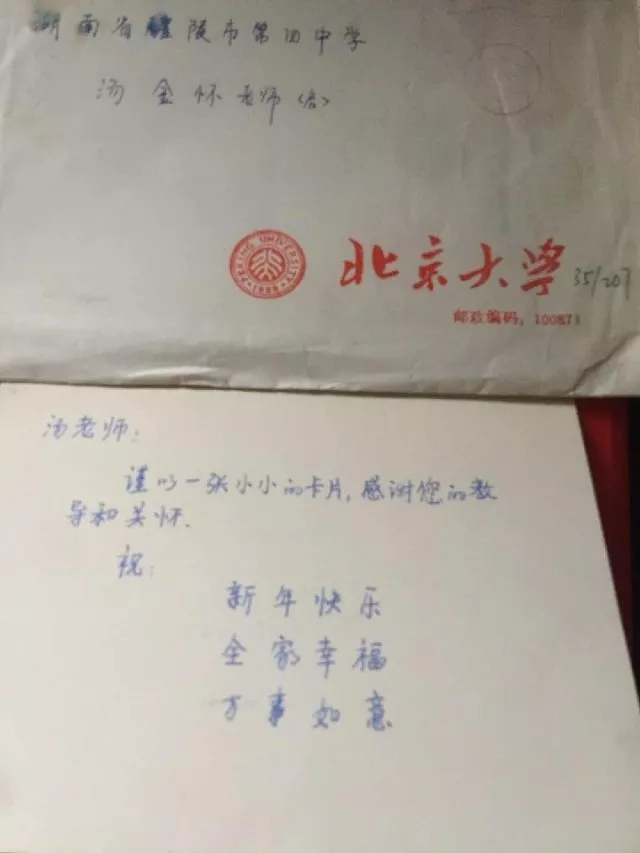 湖南省醴陵市第四中学
汤金怀老师(收)
PEKING UNIVERSITY
1898
北京大学 35/207
邮政编码：100871
汤老师：
谨以一张小小的卡片，感谢您的教
导和关怀.
祝：
新年快乐
全家幸福
万事如意